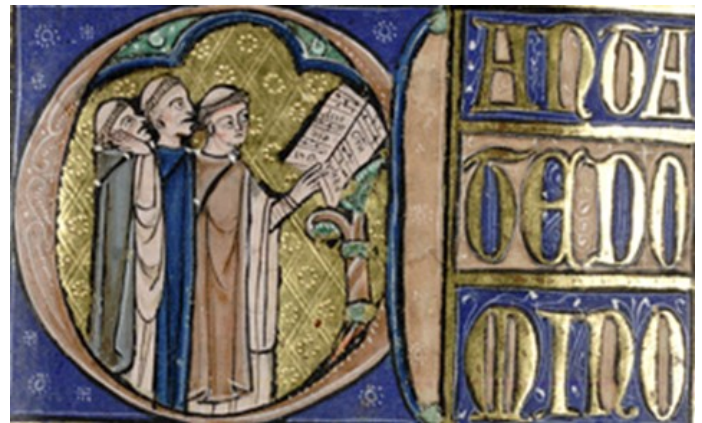 CANTA
TEDO
MINO